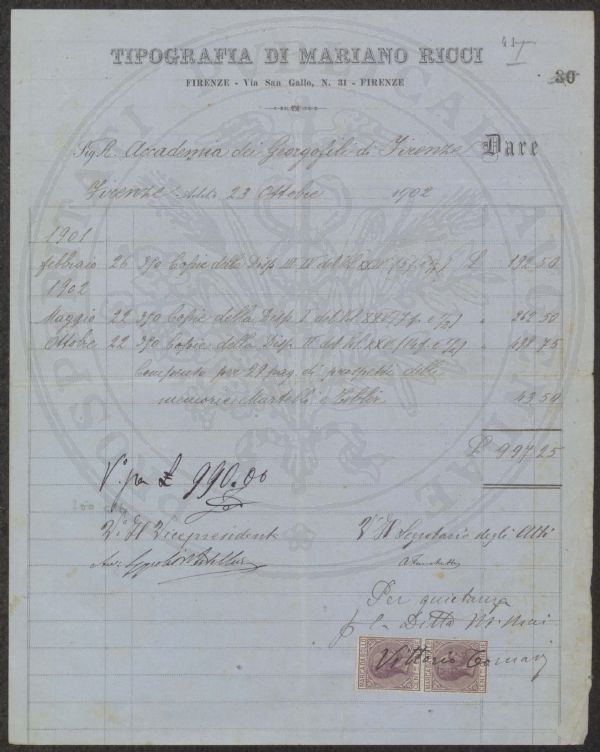 41
I
TIPOGRAFIA DI MARIANO RICCI
30
FIRENZE - Via San Gallo, N. 31 - FIRENZE
Accademia dei Georgofili di Firenze Dare
Firenze Addì 23 Ottobre 1902
1901
febbraio 26 350 Copie della Disp. III IV del Vol. XXIV £ 192 50
1902
Maggio 22 350 Copie della Disp. I del Vol. XXV (7 f. e 1/2) " 262 50
Ottobre 22 350 Copie della Disp. II del Vol. XXV (14 f. e 1/2) " 498 75
Composto per 29 pag. di prospetti delle
memorie Martelli e 43 50
£ 997 25
V° per £ 990.00
V° Il Vicepresidente
V° Il Segretario degli Atti
Per quietanza
p La Ditta M. Ricci
Vittorio
MARCA DA BOLLO MARCA DA BOLLO
CENT CENT